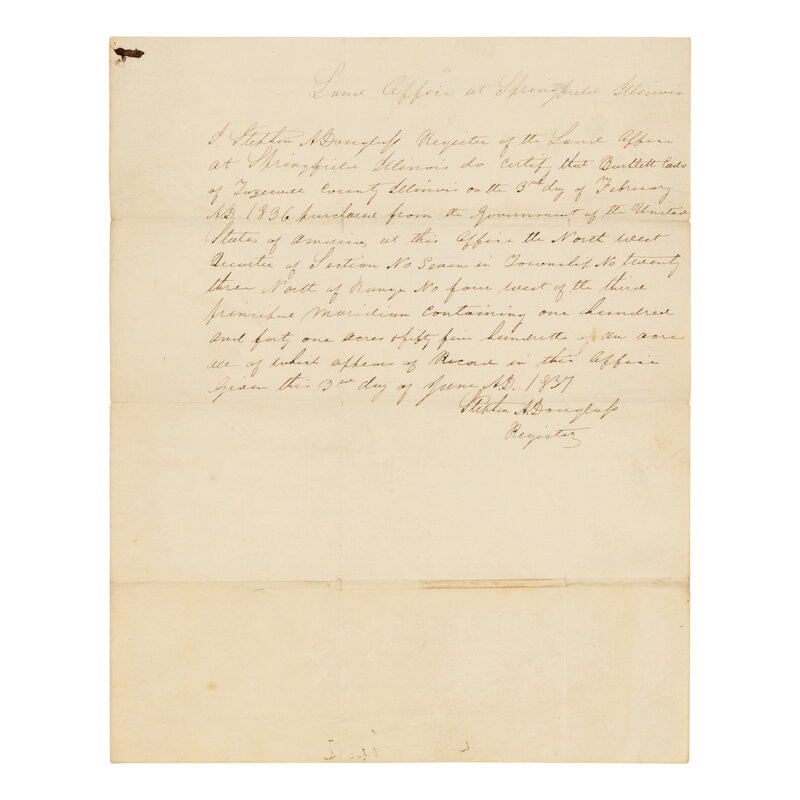 Land Office at Springfield Illinois
I, Stephen A Douglass Register of the Land Office
at Springfield Illinois do certify that Bartlett
of Tazewell County Illinois on the 3rd day of February
AD. 1836 purchased from the Government of the United
States of America at this Office the North West
Quarter of Section No Seven in Township No twenty
three North of Range No four west of the third
principal Maridian Containing one hundred
and forty one acres & fifty five hundredths of an acre
all of which appears of Record in this Office
Given this 3rd day of June AD. 1837
Stephen A. Douglass
Register